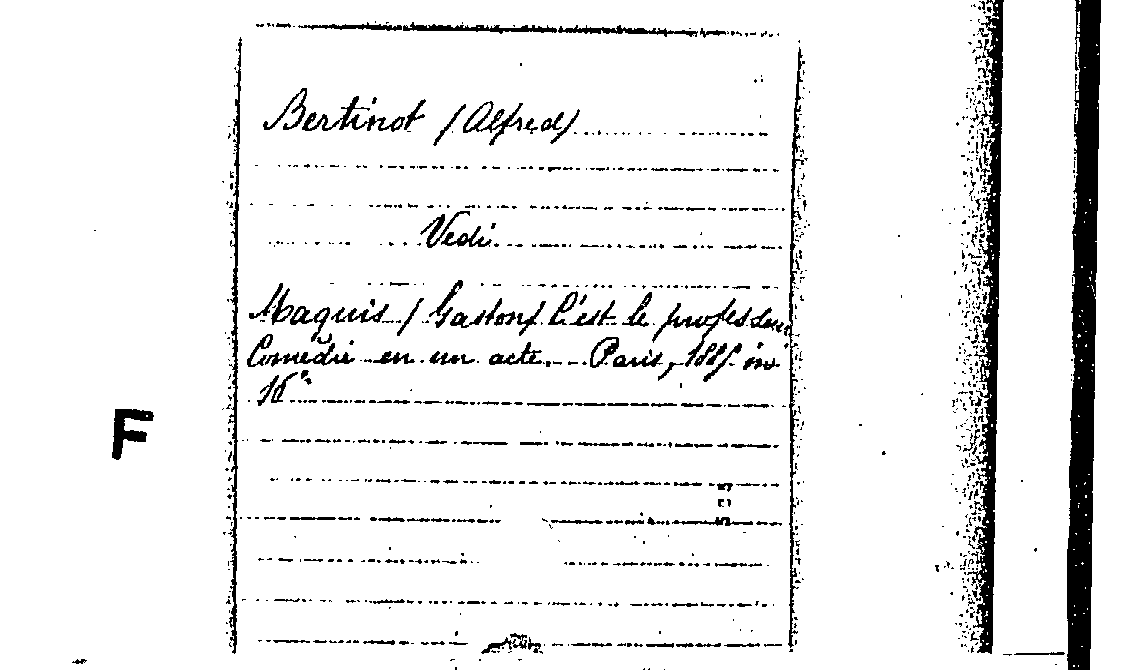 Bertinot (Alfred)
Vedi
Maquis (Gaston) C'est le professeur
Comédie en un acte. Paris, in
16°
F